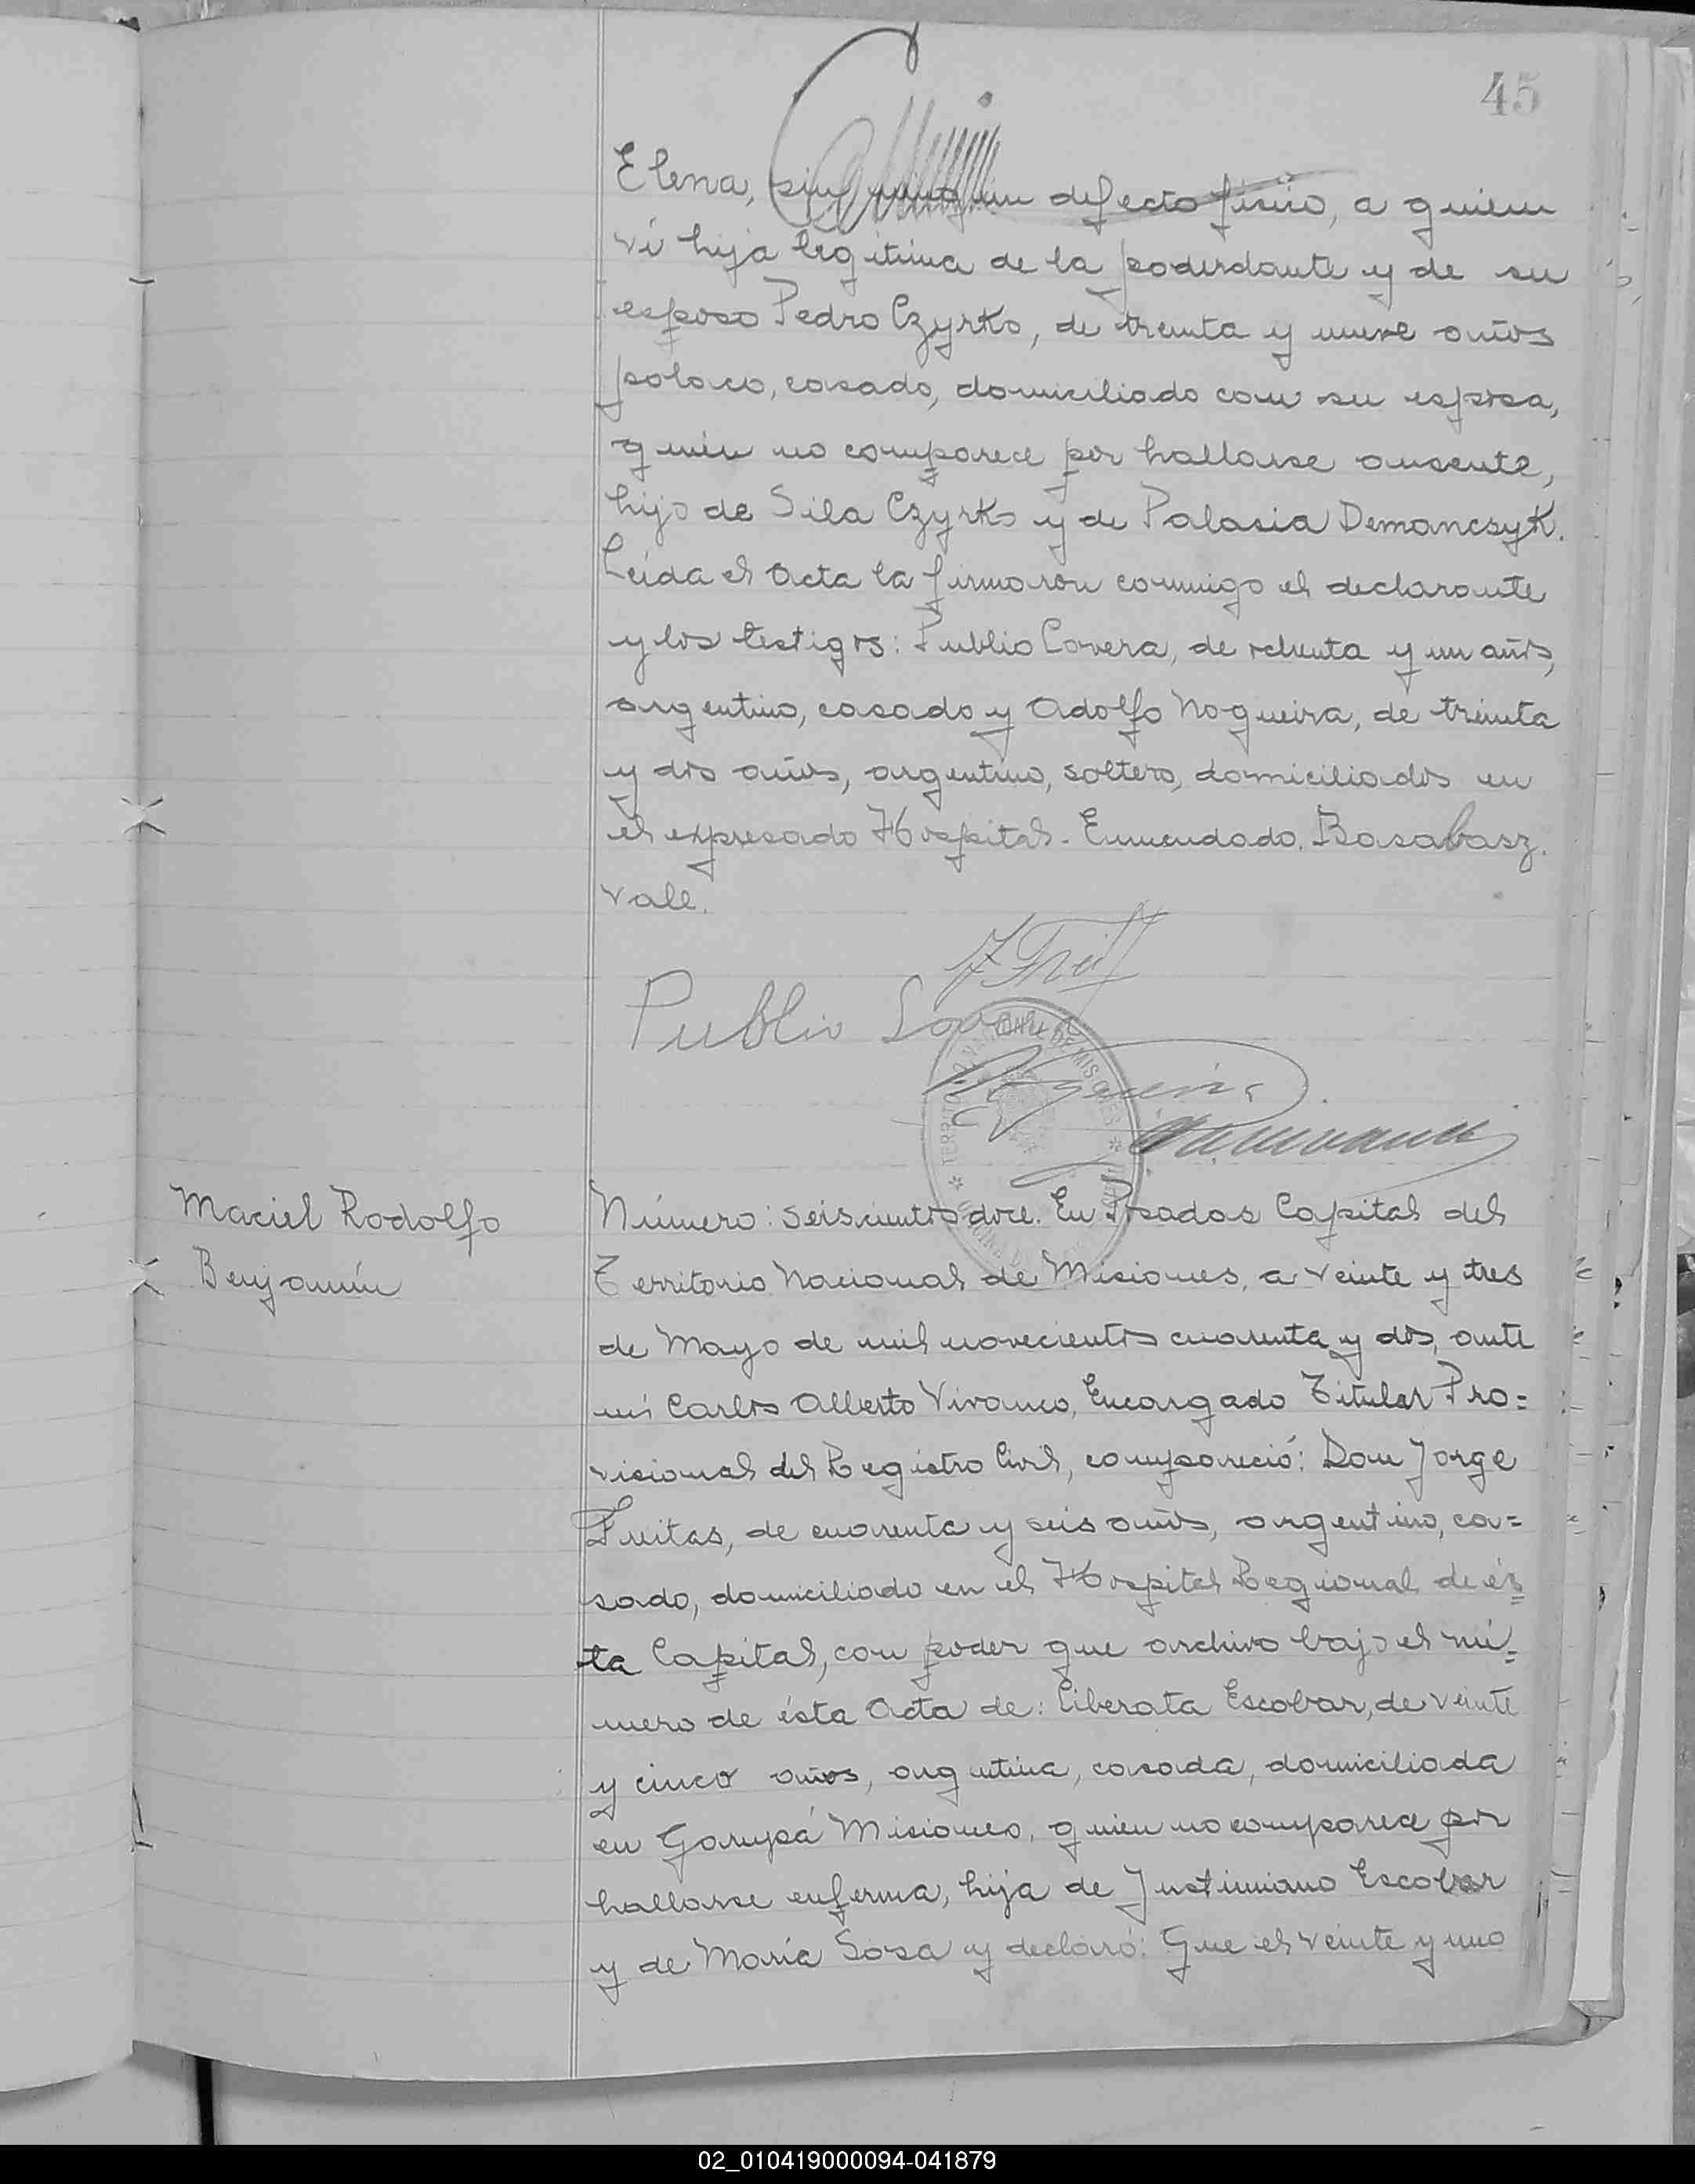 45
Elena, sin ningún defecto físico, a quien
vi hija legítima de la poderdante y de su
esposo Pedro Czyrko, de treinta y nueve años
polaco, casado, domiciliado con su esposa,
quién no comparece por hallarse ausente,
hijo de Sila Czyrko y de Palasia Demanczyk.
Leída el Acta la firmaron conmigo el declarante
y los testigos: Publio Lovera, de ochenta y un años,
argentino, casado y Adolfo Nogueira, de treinta
y dos años, argentino, soltero, domiciliados en
el expresado Hospital. Enmendado. Basabasz.
vale.
Publio
Nogueira
TERRITORIO NACIONAL DE MISIONES
Maciel Rodolfo
Benjamín
Número: seiscientos doce. En Posadas Capital del
Territorio Nacional de Misiones, a veinte y tres
de Mayo de mil novecientos cuarenta y dos, ante
mí Carlos Alberto Vivanco, Encargado Titular Pro=
visional del Registro Civil, compareció: Don Jorge
Freitas, de cuarenta y seis años, argentino, ca=
sado, domiciliado en el Hospital Regional de és=
ta Capital, con poder que archivo bajo el nú=
mero de ésta Acta de: Liberata Escobar, de veinte
y cinco años, argentina, casada, domiciliada
en Garupá Misiones, quien no comparece por
hallarse enferma, hija de Justiniano Escobar
y de María Sosa y declaró: Que el veinte y uno
02_010419000094-041879